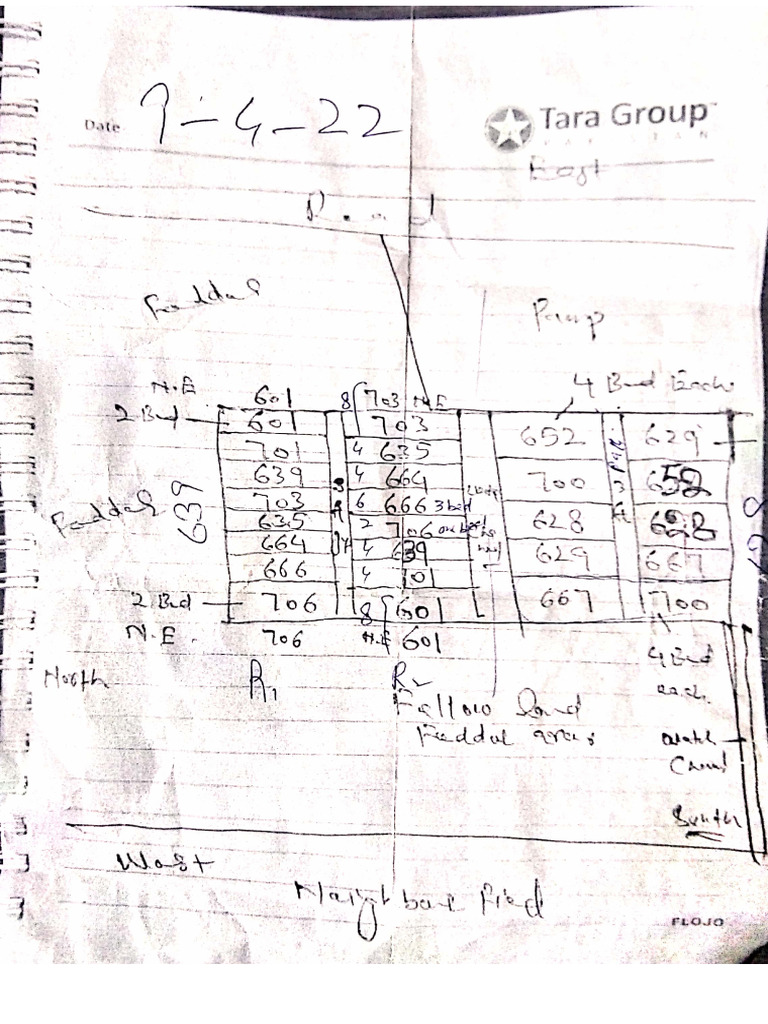 Date 9-4-22
Tara Group
PAKISTAN
East
Road
Faddal
Pump
N.E 601 8 703 N.E 4 Bed Each
2 Bed 601 703 652 629
701 4 635
639 4 664 700 652
703 6 666 3 bed
635 2 706 one bed 628 628
664 4 639 629 667
666 4 701
2 Bed 706 8 601 667 700
Faddal 639
3 ft
N.E. 706 N.E 601
4 Bed each
North R1 R2
Fallow land
Faddal area
South
West
Neighbour field
FLOJO